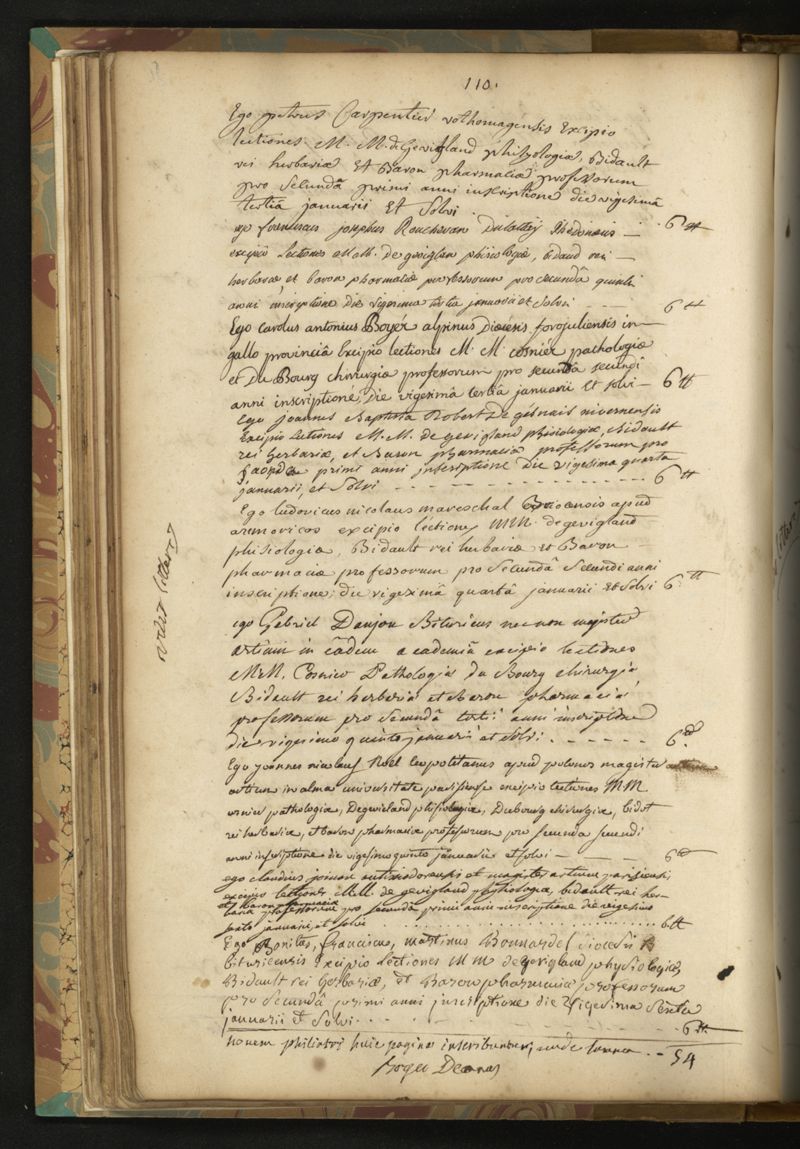 110.
Ego petrus Carpentier rothomagensis Excipio
lectiones M. M. de Gevigland physiologiæ, Bidault
rei herbariæ Et Baron pharmaciæ professorum
pro Secundâ primi anni inscriptione die vigesima
tertia januarii Et Solvi 6 ₶
ego franciscus josephus
excipio Lectiones M.M. de geviglan phisiologiæ, bidaud rei
herbariæ et baron pharmaciæ professorum pro secundâ quinti
anni inscriptione die vigesima tertia januarii et solvi 6 ₶
Ego Carolus antonius Boyer alpinus Diœcesis forojuliensis in
gallo provinciâ Excipio lectiones M. M. cosnier pathologiæ
et Du Bourg chirurgiæ professorum pro secundâ secundi
anni inscriptione, Die vigesimâ tertiâ januarii Et solvi 6 ₶
Ego joannes Baptista Robert De gibnais nivernensis
Excipio Lectiones M. M. de gevigland phisiologiæ, bidault
rei herbariæ, et Baron pharmaciæ professorum pro
secunda primi anni inscriptione Die vigesima quarta
januarii, et Solvi 6 ₶
Ego ludovicus nicolaus mareschal apud
armoricos excipio lectiones MM. de gevigland
phisiologiæ, Bidault rei herbariæ et Baron
pharmaciæ professorum pro Secundâ Secundi anni
inscriptione; die vigesimâ quartâ januarii et Solvi 6 ₶
ego Gabriel Danjou Bituricus necnon magister
artium in eâdem academiâ excipio lectiones
M.M. Cosnier Pathologiæ du Bourg chirurgiæ
Bidault rei herbariæ et Baron pharmaciæ
professorum pro Secundâ tertii anni inscriptione
die vigesimo quinto januarii et solvi 6 ₶
Ego joannes nicolaus Noel leopolitanus apud polonos magister
artium in alma universitate parisiense excipio lectiones MM
cosnier pathologiæ, Degevieland phisiologiæ, Dubourg chirurgiæ, bidot
rei herbariæ, et baron pharmaciæ professorum pro secunda secundi
anni inscriptione die vigesimo quinto januarii et solvi 6 ₶
ego claudius et magister artium parisiensis,
excipio lectiones M.M. de gevigland physiologiæ, bidault rei her-
bariæ et Baron pharmaciæ professorum pro secunda primi anni inscriptione die vigesimo
sexto januarii, et solvi 6 ₶
Ego Bonitus, franciscus, martinus Bonnardel diocesis
bituricensis Excipio Lectiones MM de gevigland physiologiæ,
Bidault rei herbariæ, et Baron pharmaciæ professorum
pro Secundâ primi anni inscriptione die Vigesima Sexta
januarii et Solvi 6 ₶
nonem philiatri huic paginæ inscribuntur, unde summa 54